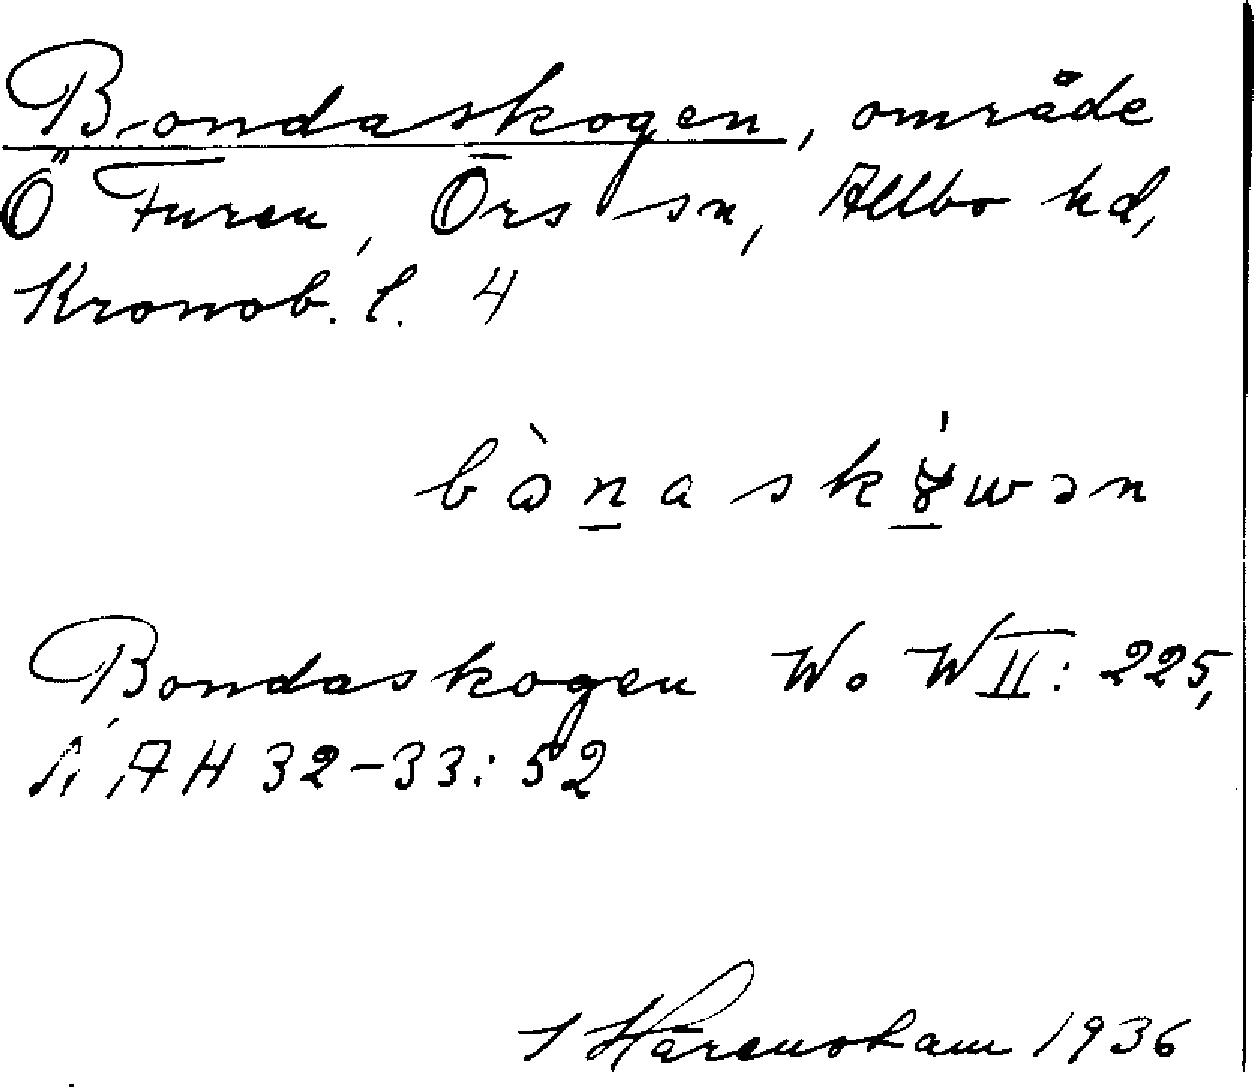 Bondaskogen, område
Ö Furen, Örs sn, Allbo hd,
Kronob. l. 4
bònaskɤ́wən
Bondaskogen W o W II: 225,
AH 32-33: 52
Härenstam 1936